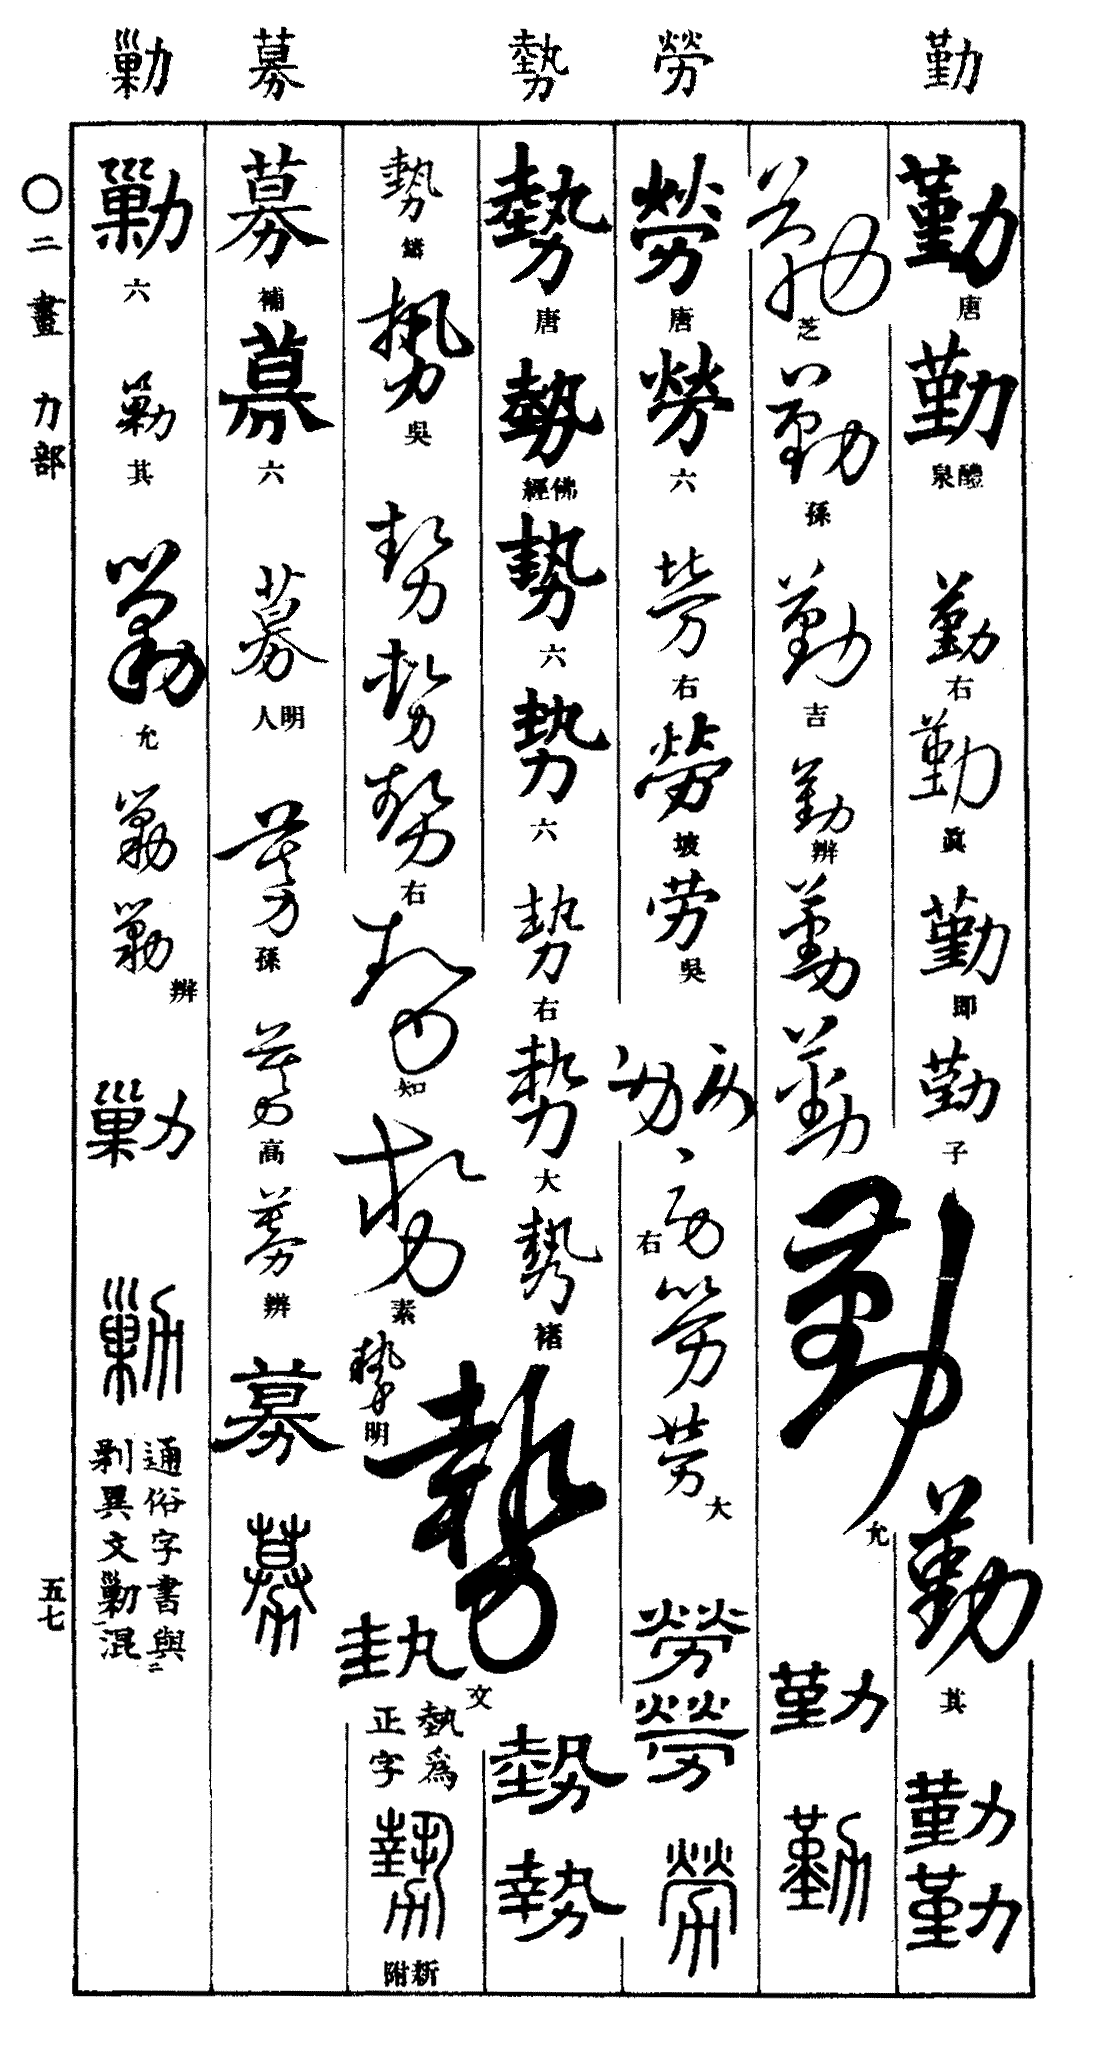 勤
勞
勢
募
勦
勤
唐
勤
醴泉
勤
右
勤
眞
勤
即
勤
子
勤
允
勤
其
勤
勤
勤
芝
勤
孫
勤
吉
勤
辨
勤
勤
勤
勤
勞
唐
勞
六
勞
右
勞
坡
勞
吳
勞
勞
勞
右
勞
勞
大
勞
勞
勞
勢
唐
勢
佛經
勢
六
勢
六
勢
右
勢
大
勢
褚
勢
文
勢
勢
勢
勢
吳
勢
勢
勢
右
勢
知
勢
素
勢
明
埶
埶爲
正字
勢
新附
募
補
募
六
募
明人
募
孫
募
高
募
辨
募
募
勦
六
勦
其
勦
允
勦
勦
辨
勦
勦
通俗字書與
剿異文勦混
〇二畫 力部
五七